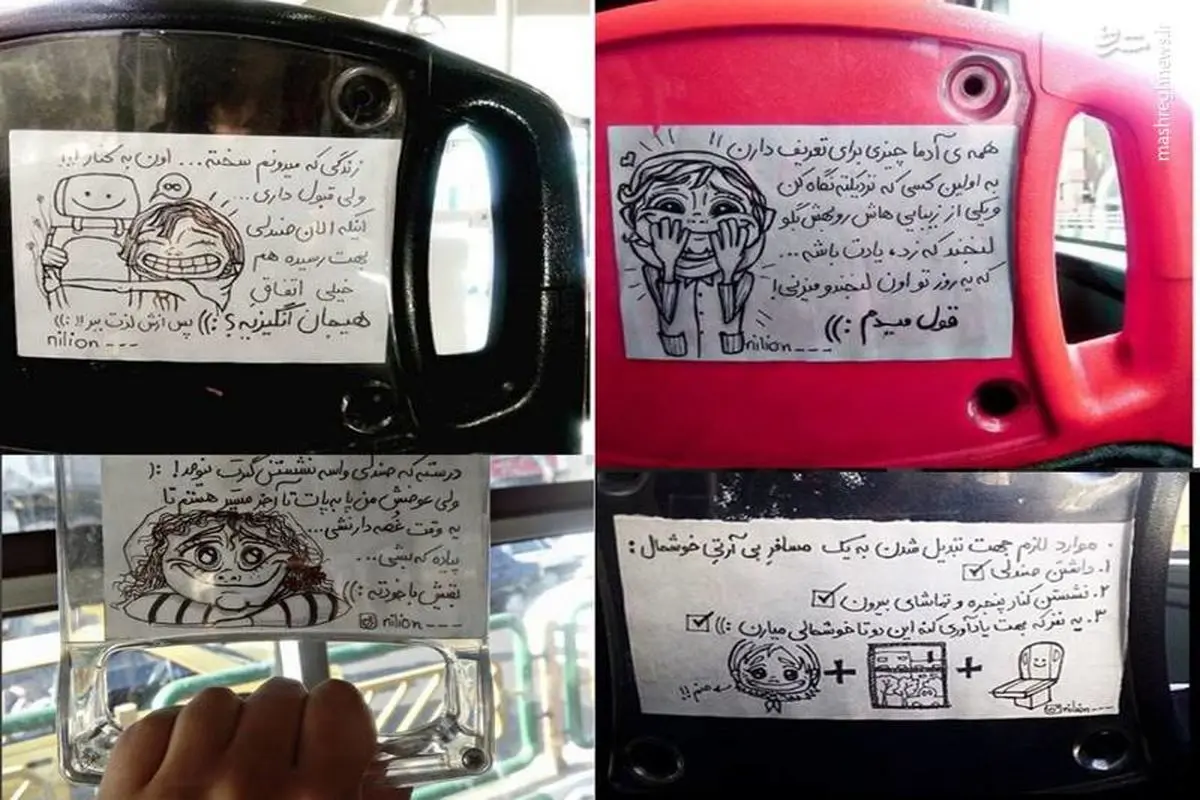 زندگی که میدونم سخته... اون به کنار!!!
ولی قبول داری...
اینکه الان صندلی
بهت رسیده هم
خیلی اتفاق
هیجان انگیزیه؟ :)) پس ازش لذت ببر!! :))
nilion---
همه ی آدما چیزی برای تعریف دارن!!
به اولین کسی که نزدیکته نگاه کن
و یکی از زیبایی هاش رو بهش بگو
لبخند که زد، یادت باشه...
که یه روز تو اون لبخندو میزنی!
قول میدم :))
nilion---
درسته که صندلی واسه نشستن گیرت نیومد! :(
ولی عوضش من پا به پات تا آخر مسیر هستم تا
یه وقت غصه دار نشی...
پیاده که بشی...
بقیش با خودته :))
nilion---
موارد لازم جهت تبدیل شدن به یک مسافرِ بی آر تیِ خوشحال:
۱. داشتن صندلی ☑
۲. نشستن کنار پنجره و تماشای بیرون ☑
۳. یه نفر که بهت یادآوری کنه این دو تا خوشحالی میارن :)) ☑
منم!!
+ +
nilion---
mashreghnews.ir